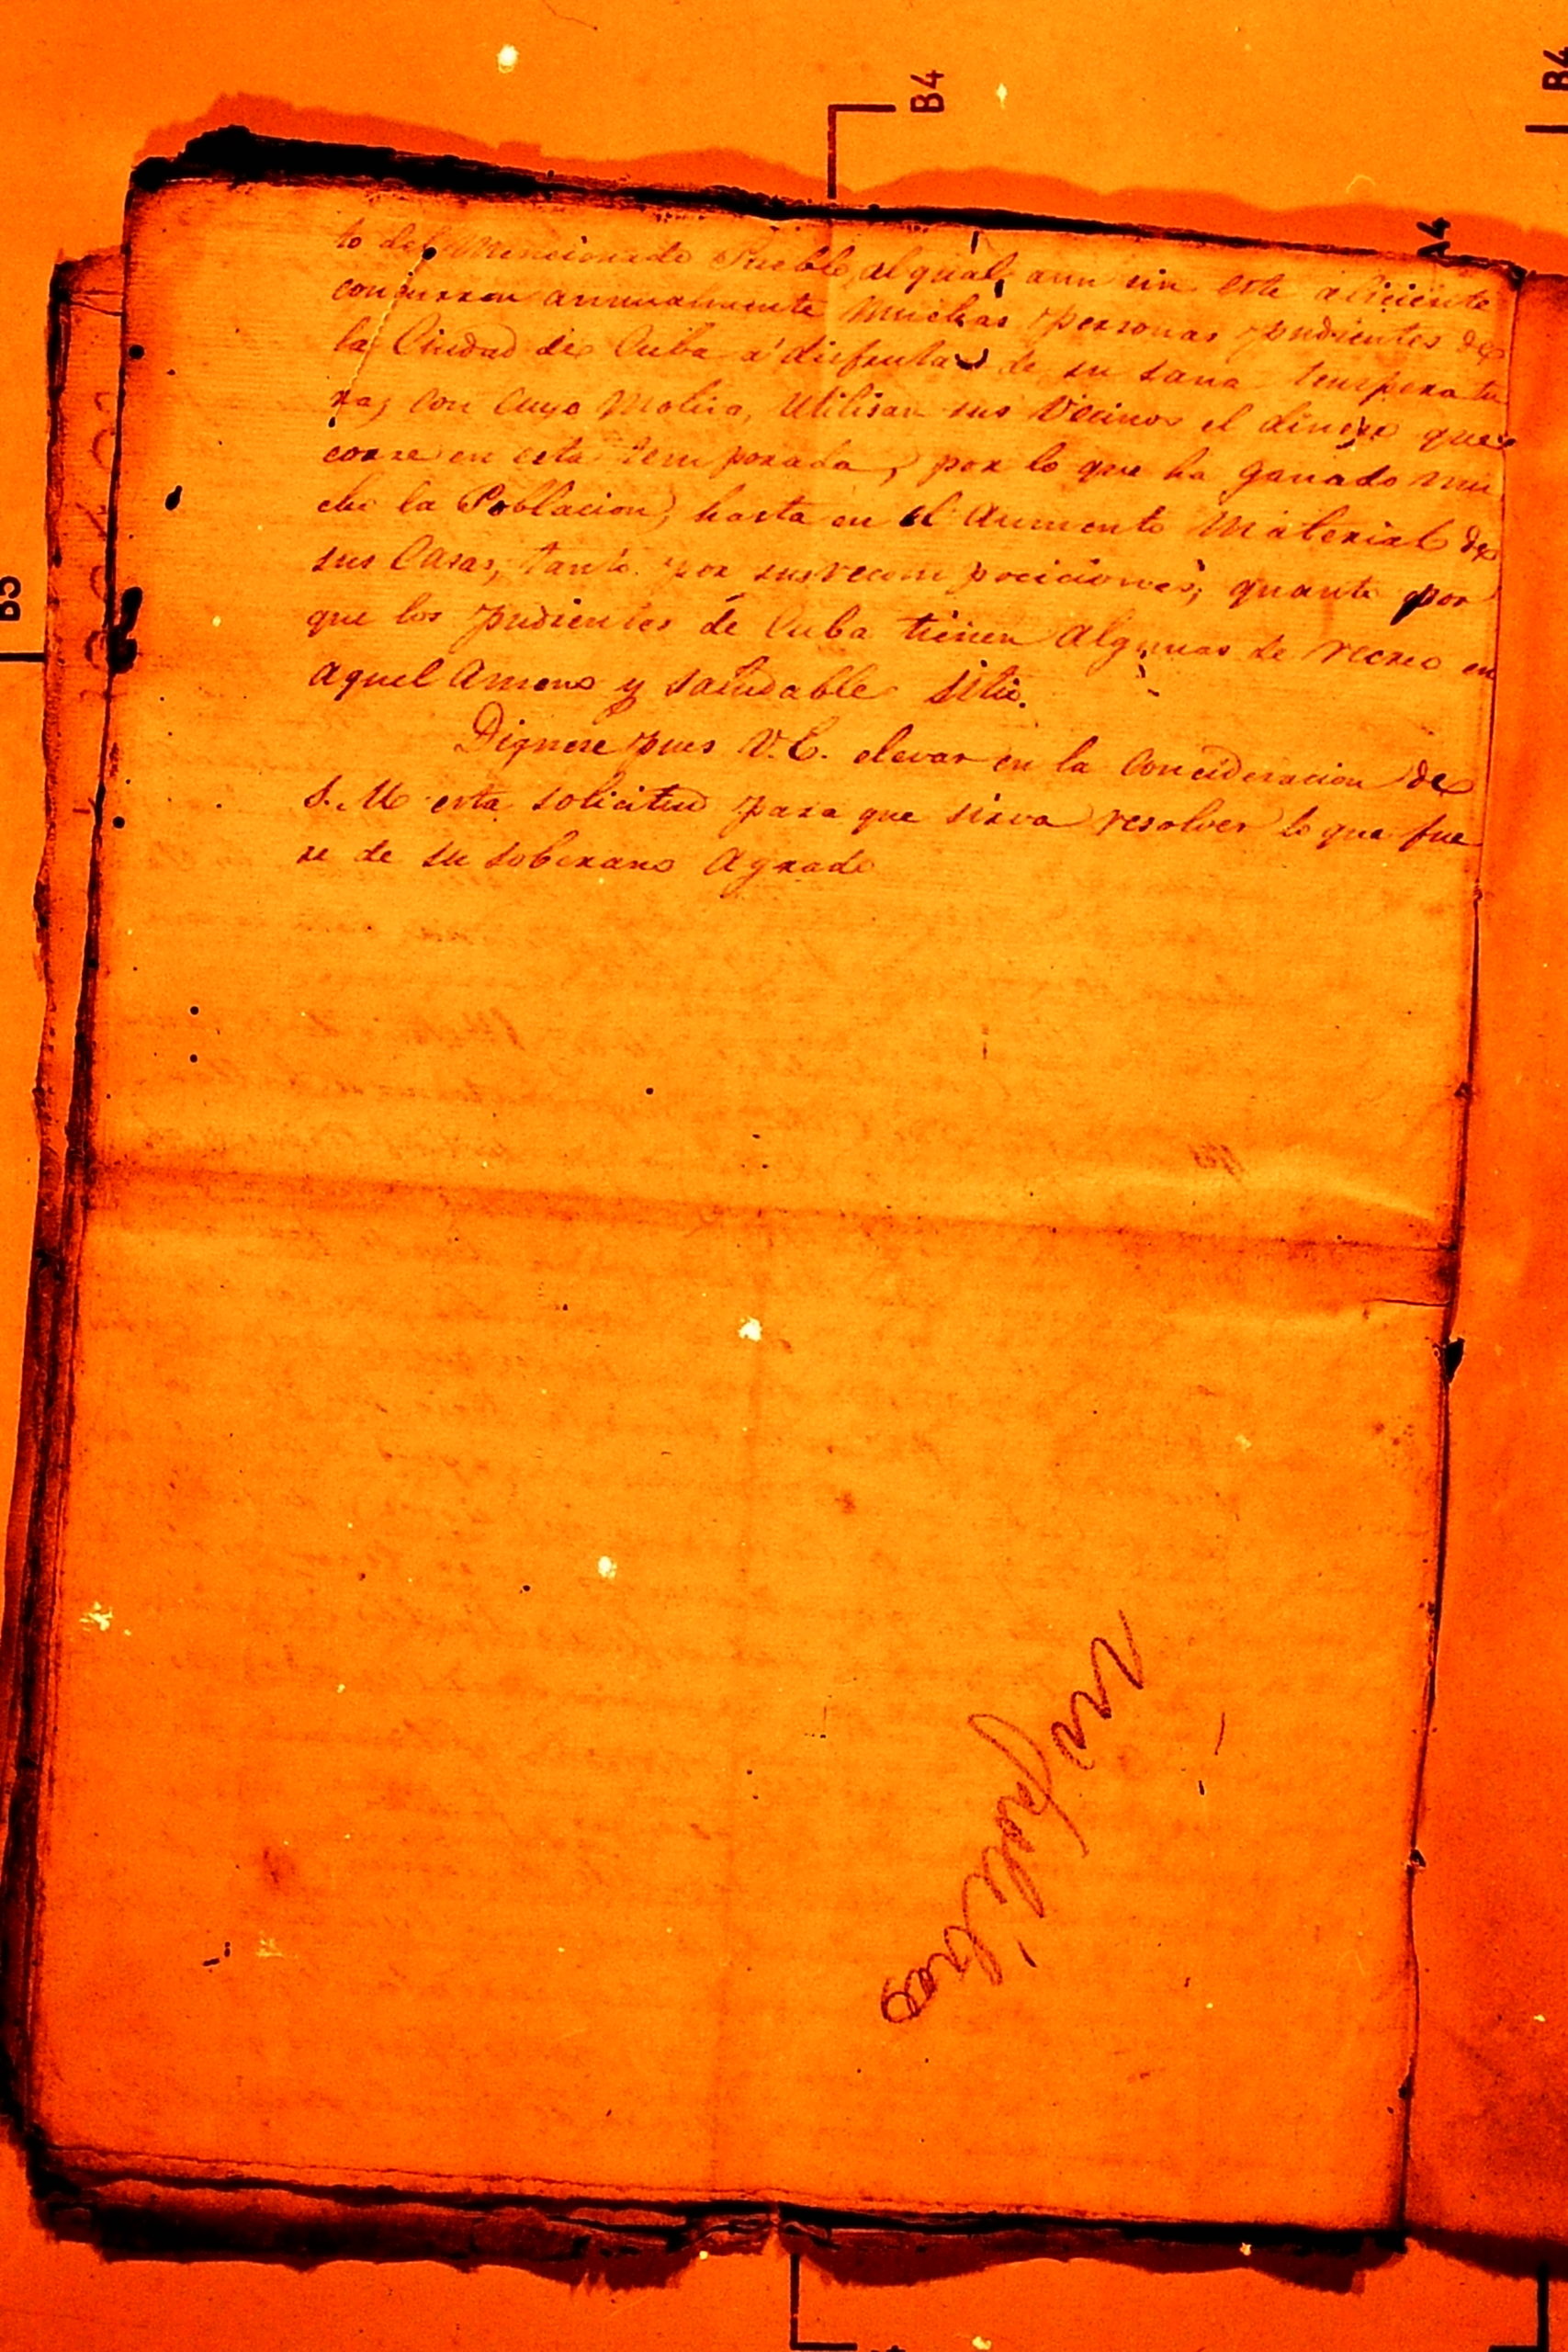 to del Mencionado Pueblo, al qual, aun sin este aliciente
concurren annualmente muchas personas pudientes de
la Ciudad de Cuba á disfrutar de su sana temperatu
ra, con cuyo motivo, Utilisan sus Vecinos el dinero que
corre en esta temporada, por lo que ha ganado mu
cho la Poblacion, hasta en el Aumento Material de
sus Casas, tanto por sus recom pociciones, quanto por
que los pudientes de Cuba tienen Algunas de recreo en
Aquel Ameno y saludable sitio.
Dignese pues V.E. elevar en la Concideracion de
S. M esta solicitud para que sirva resolver lo que fue
re de su soberano Agrado
B4
B4
A4
B5